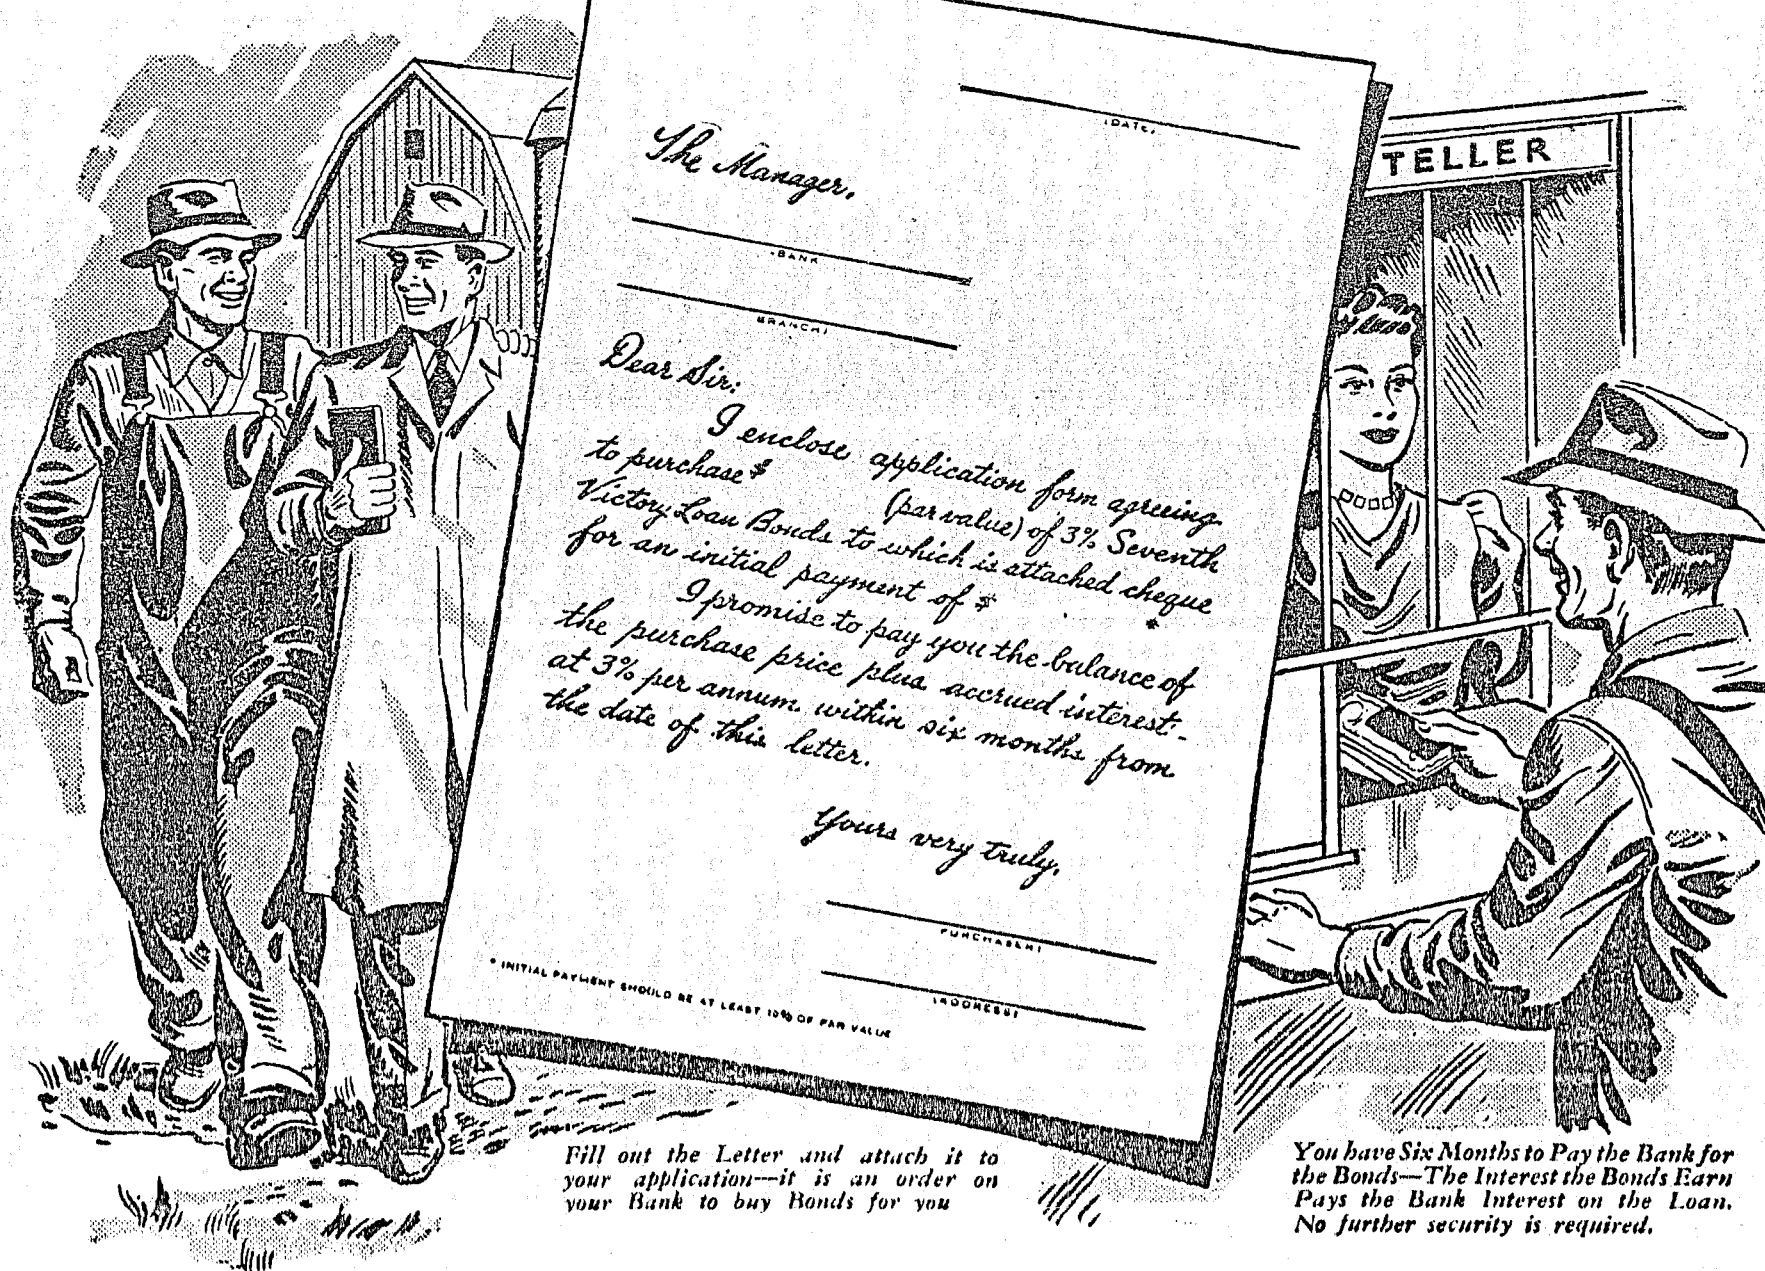 (DATE)
TELLER
The Manager,
(BANK)
(BRANCH)
Dear Sir:
I enclose application form agreeing
to purchase $ (par value) of 3% Seventh
Victory Loan Bonds to which is attached cheque
for an initial payment of $ *
I promise to pay you the balance of
the purchase price plus accrued interest
at 3% per annum within six months from
the date of this letter.
Yours very truly,
(PURCHASER)
(ADDRESS)
* INITIAL PAYMENT SHOULD BE AT LEAST 10% OF PAR VALUE
Fill out the Letter and attach it to
your application—it is an order on
your Bank to buy Bonds for you
You have Six Months to Pay the Bank for
the Bonds—The Interest the Bonds Earn
Pays the Bank Interest on the Loan.
No further security is required.